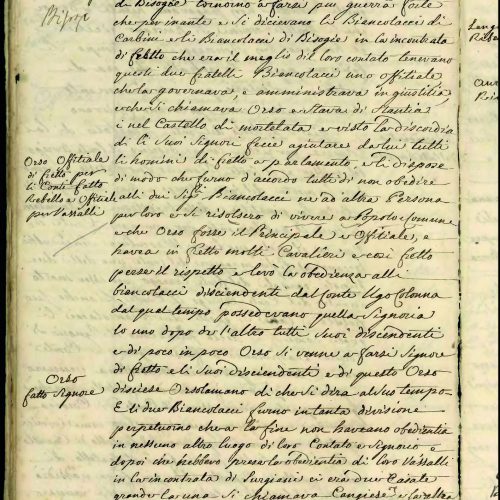 di Bisogie tornorno a farsi piu guerra forte
che per inante e si dicevano li Biancolacci di
Carbini e li Biancolacci di Bisogie in la incontrata
di fretto che era il meglio dil loro contato tenevano
questi due fratelli Biancolacci uno offitiale
che la governava, e amministrava in giustitia,
e che si chiamava Orso e stava di stantia
i nel Castello di mortelata e visto la discordia
di li suoi Signori fece agiutare da lui tutti
li homini di fretto a parlamento, e li dispose
di modo che furno d'accordo tutti di non obedire
alli dui Sig.ri Biancolacci ne ad altra Persona
per loro e si risolsero di vivere a Popolo e Comune
e che Orso fosse il Principale e Offitiale, e
havea in fretto molti Cavalieri e così fretto
perse il rispetto e levò la obedienza alli
biancolacci discendenti dal Conte Ugo Colonna
dal qual tempo possedevano quella Signoria
lo uno dopo de l'altro tutti suoi discendenti
e di poco in poco Orso si venne a farsi Signore
di fretto e li suoi discendenti e di questo Orso
discese Orsolamano di che si dira al suo tempo
E li due Biancolacci furno in tanta divisione
perpetuorno che a la fine non haveano obedientia
in nessuno altro luogo di loro Contato e Signorio e
dopoi che hebbero presa la obedientia di loro Vassalli
in la incontrata di Surgiani ci era due Casate
grande la una si chiamava
Bisogi
Orso Offitiale
di fretto per
li Conti fatto
Rebello e Offitiale
per Vassalli
Orso
fatto Signore